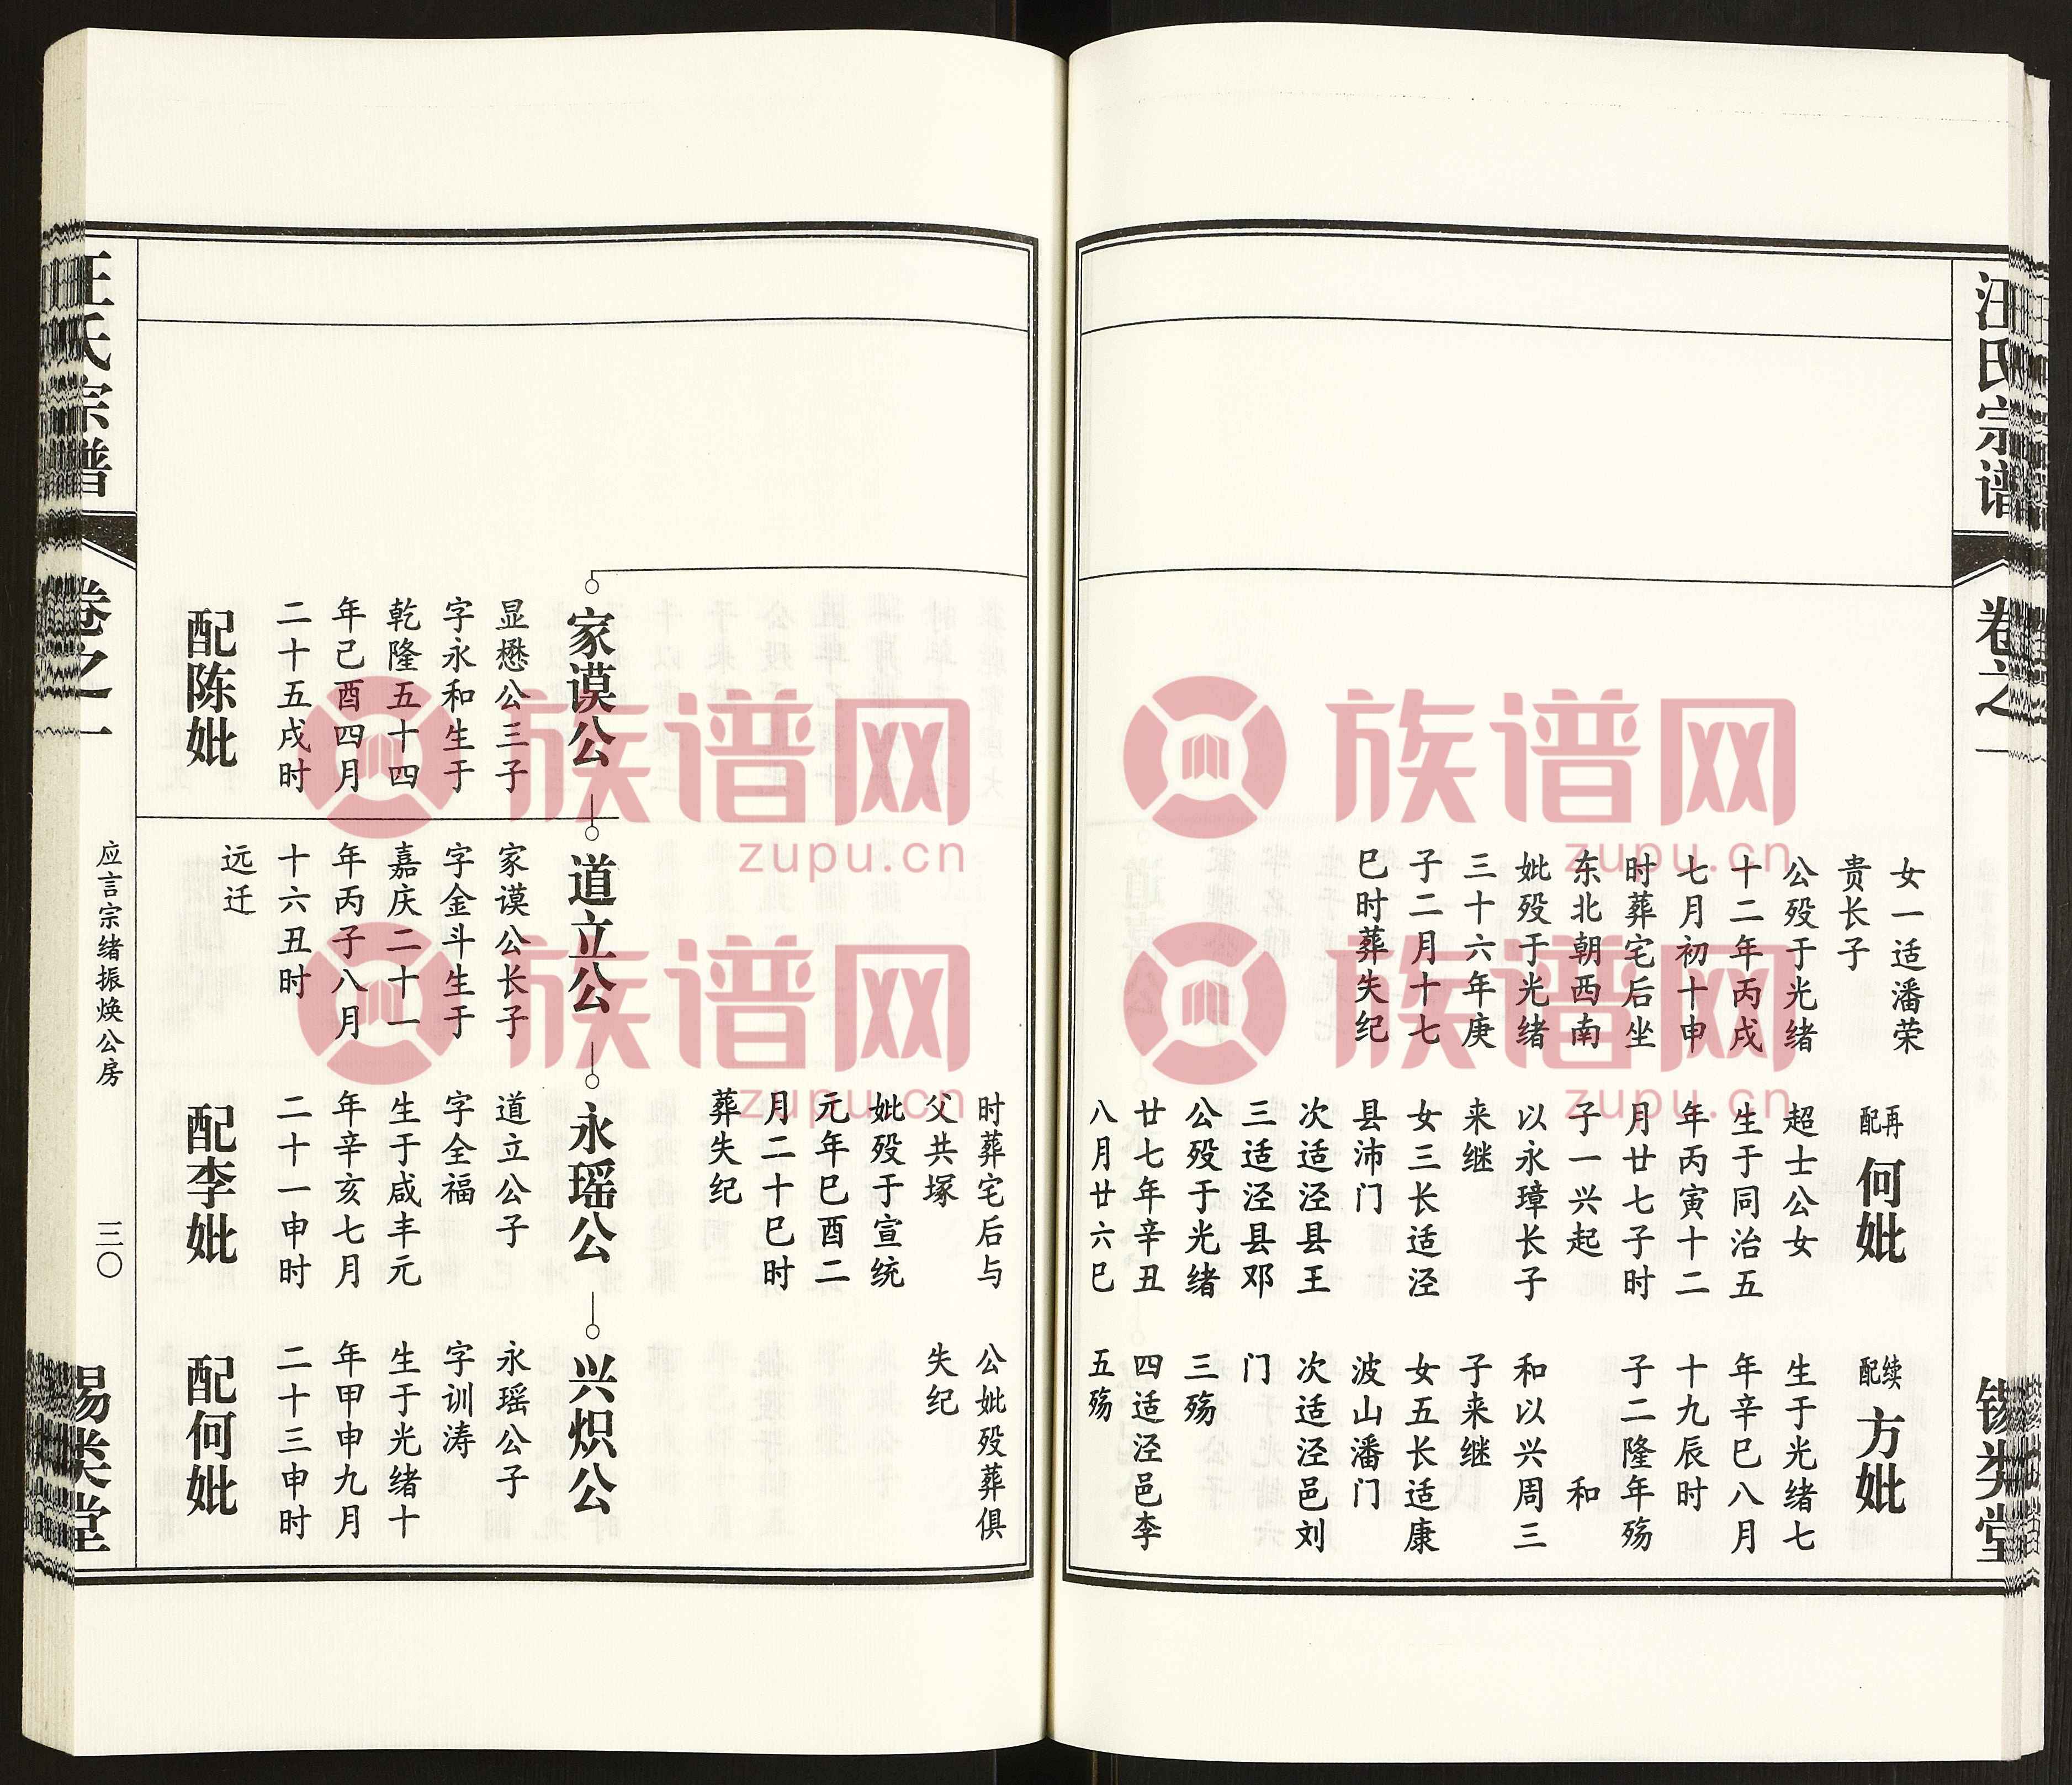 汪氏宗谱
卷之一
锡类堂
女一适潘荣
贵长子
公殁于光绪
十二年丙戌
七月初十申
时葬宅后坐
东北朝西南
妣殁于光绪
三十六年庚
子二月十七
巳时葬失纪
再配
何妣
超士公女
生于同治五
年丙寅十二
月廿七子时
子一兴起
以永璋长子
来继
女三长适泾
县沛门
次适泾县王
三适泾县邓
公殁于光绪
廿七年辛丑
八月廿六巳
续配
方妣
生于光绪七
年辛巳八月
十九辰时
子二隆年殇
和
和以兴周三
子来继
女五长适康
波山潘门
次适泾邑刘
门
三殇
四适泾邑李
五殇
时葬宅后与
父共塚
妣殁于宣统
元年巳酉二
月二十巳时
葬失纪
公妣殁葬俱
失纪
家谟公
显懋公三子
字永和生于
乾隆五十四
年己酉四月
二十五戌时
配陈妣
道立公
家谟公长子
字金斗生于
嘉庆二十一
年丙子八月
十六丑时
远迁
永瑶公
道立公子
字全福
生于咸丰元
年辛亥七月
二十一申时
配李妣
兴炽公
永瑶公子
字训涛
生于光绪十
年甲申九月
二十三申时
配何妣
汪氏宗谱
卷之一
应言宗绪振焕公房
三〇
锡类堂
族谱网
zupu.cn
族谱网
zupu.cn
族谱网
zupu.cn
族谱网
zupu.cn